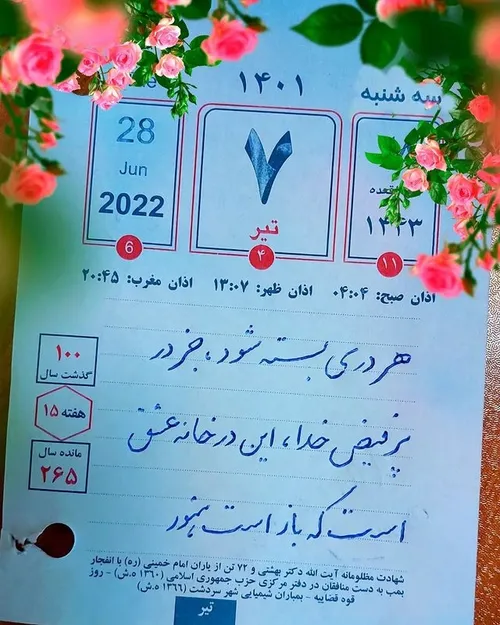 ۱۴۰۱
سه شنبه
28
Jun
2022
6
۷
تیر
۴
قعده
۱۴۴۳
۱۱
اذان صبح: ۰۴:۰۴ اذان ظهر: ۱۳:۰۷ اذان مغرب: ۲۰:۴۵
هر دری بسته شود، جز در
پر فیض خدا، این در خانه عشق
است که باز است هنوز
۱۰۰
گذشت سال
هفته ۱۵
مانده سال
۲۶۵
شهادت مظلومانه آیت الله دکتر بهشتی و ۷۲ تن از یاران امام خمینی (ره) با انفجار
بمب به دست منافقان در دفتر مرکزی حزب جمهوری اسلامی (۱۳۶۰ ه.ش) - روز
قوه قضاییه - بمباران شیمیایی شهر سردشت (۱۳۶۶ ه.ش)
تیر